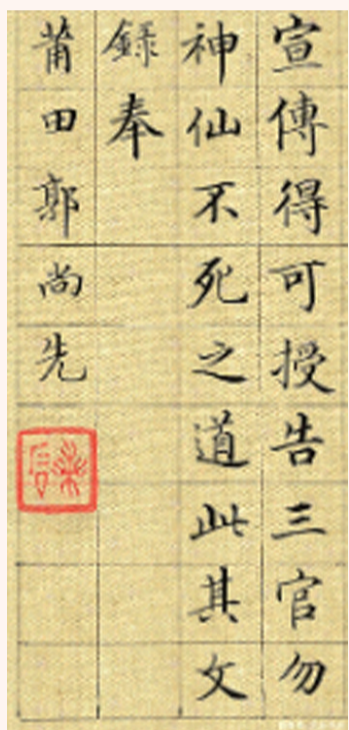 宣傳得可授告三官勿
神仙不死之道此其文
錄奉
莆田郭尚先